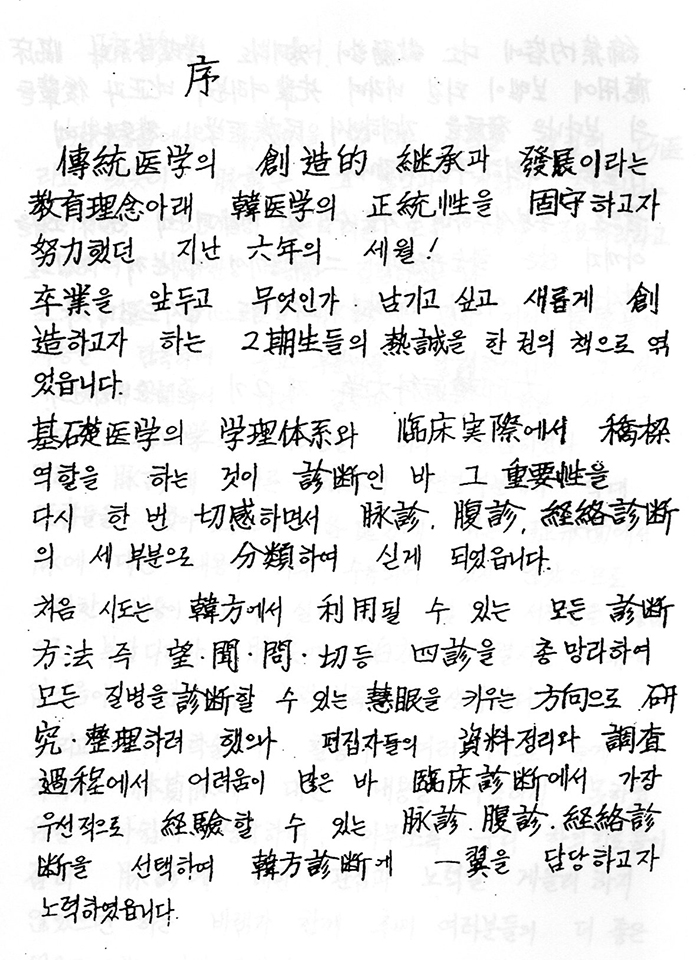 序
傳統医学의 創造的 継承과 發展이라는
教育理念아래 韓医学의 正統性을 固守하고자
努力했던 지난 六年의 세월!
卒業을 앞두고 무엇인가 남기고 싶고 새롭게 創
造하고자 하는 2期生들의 熱誠을 한 권의 책으로 엮
었읍니다.
基礎医学의 学理体系와 臨床実際에서 橋樑
역할을 하는 것이 診断인 바 그 重要性을
다시 한 번 切感하면서 脉診, 腹診, 経絡診断
의 세 부분으로 分類하여 싣게 되었읍니다.
처음 시도는 韓方에서 利用될 수 있는 모든 診断
方法 즉 望·聞·問·切등 四診을 총 망라하여
모든 질병을 診断할 수 있는 慧眼을 키우는 方向으로 研
究·整理하려 했으나 편집자들의 資料정리와 調査
過程에서 어려움이 많은 바 臨床診断에서 가장
우선적으로 経驗할 수 있는 脉診·腹診·経絡診
断을 选택하여 韓方診断에 一翼을 담당하고자
노력하였읍니다.